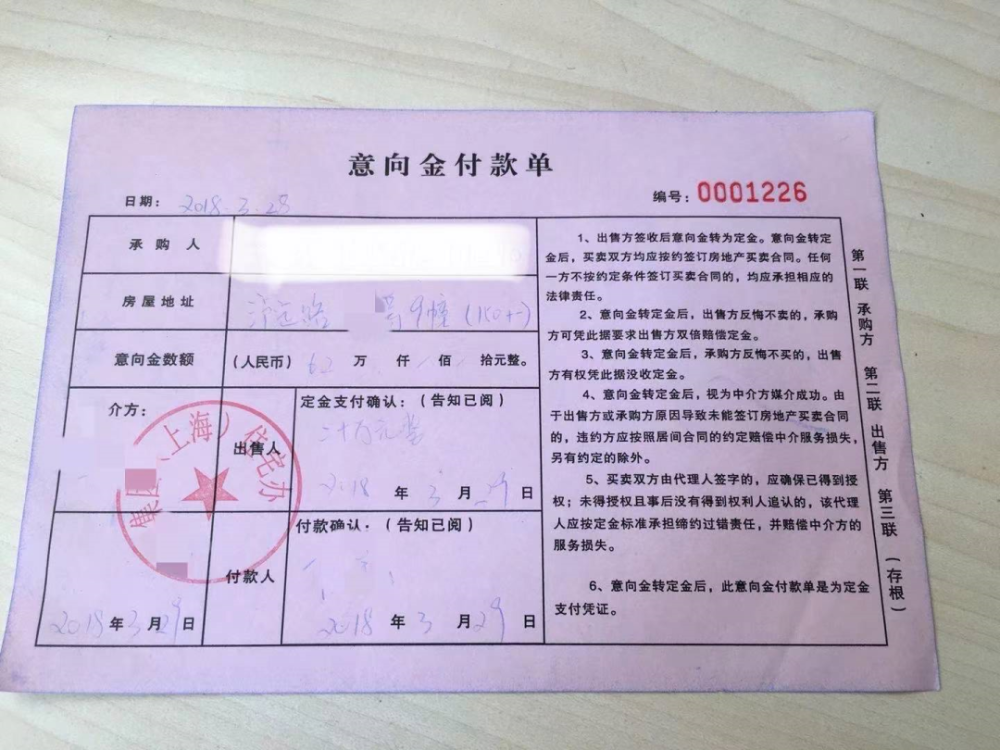 意向金付款单
日期： 2018.3.28
编号：0001226
承 购 人
房屋地址
号9幢
意向金数额
(人民币) 62 万 仟 佰 拾元整。
介方：
（上海）住宅办
集
出售人
定金支付确认：（告知已阅）
二十万元整
2018 年 3 月 29 日
付款人
付款确认：（告知已阅）
2018 年 3 月 29 日
2018 年 3 月 29 日
1、出售方签收后意向金转为定金。意向金转定
金后，买卖双方均应按约签订房地产买卖合同。任何
一方不按约定条件签订买卖合同的，均应承担相应的
法律责任。
2、意向金转定金后，出售方反悔不卖的，承购
方可凭此据要求出售方双倍赔偿定金。
3、意向金转定金后，承购方反悔不买的，出售
方有权凭此据没收定金。
4、意向金转定金后，视为中介方媒介成功。由
于出售方或承购方原因导致未能签订房地产买卖合同
的，违约方应按照居间合同的约定赔偿中介服务损失，
另有约定的除外。
5、买卖双方由代理人签字的，应确保已得到授
权；未得授权且事后没有得到权利人追认的，该代理
人应按定金标准承担缔约过错责任，并赔偿中介方的
服务损失。
6、意向金转定金后，此意向金付款单是为定金
支付凭证。
第一联 承购方 第二联 出售方 第三联 （存根）